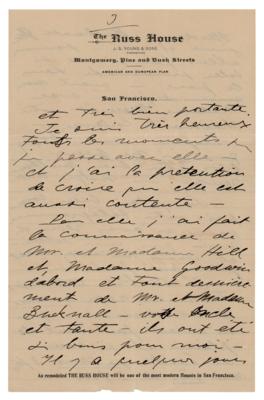 3
The Russ House
J. S. YOUNG & SONS
Montgomery, Pine and Bush Streets
AMERICAN AND EUROPEAN PLAN
San Francisco,
et très bien portante
Je suis très heureux
tous les moments que
je passe avec elle –
et j'ai la prétention
de croire qu'elle est
aussi contente –
Par elle j'ai fait
la connaissance de
Mr. et Madame Hill
et Madame Goodwin
d'abord et tout dernière
ment de Mr. et Madame
Bucknall – votre oncle
et tante – ils ont été
si bons pour moi –
Il y a quelques jours
As remodeled THE RUSS HOUSE will be one of the most modern Houses in San Francisco.